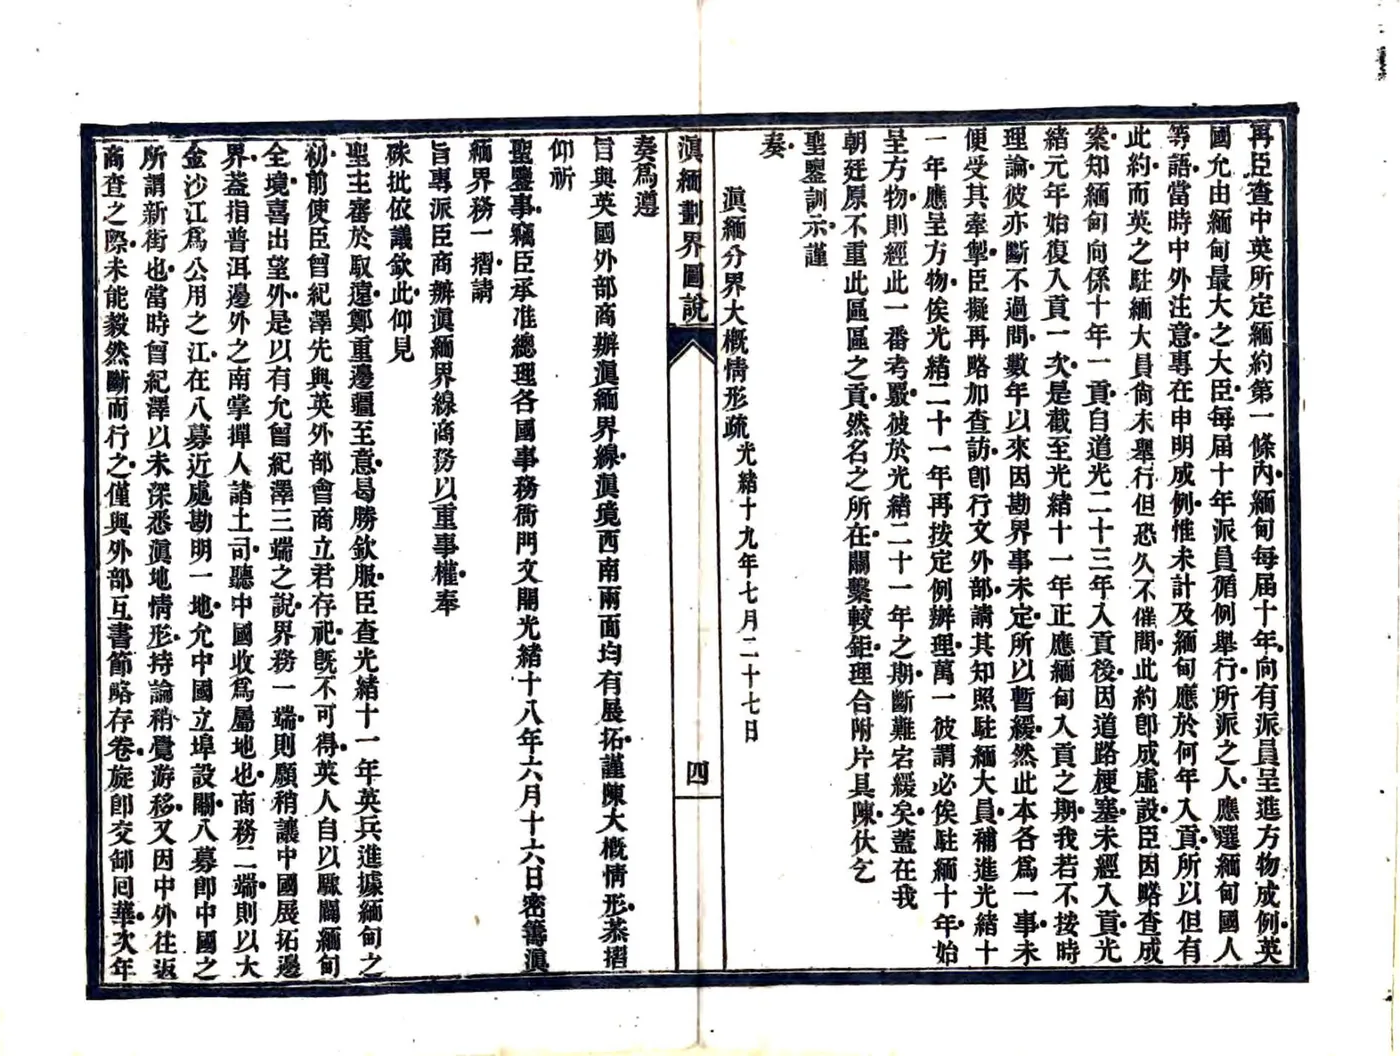 再臣查中英所定緬約第一條內緬甸每屆十年向有派員呈進方物成例英
國允由緬甸最大之大臣每屆十年派員循例舉行所派之人應選緬甸國人
等語當時中外注意專在申明成例惟未計及緬甸應於何年入貢所以但有
此約而英之駐緬大員尙未舉行但恐久不催問此約卽成虛設臣因略查成
案知緬甸向係十年一貢自道光二十三年入貢後因道路梗塞未經入貢光
緒元年始復入貢一次是截至光緒十一年正應緬甸入貢之期我若不按時
理論彼亦斷不過問數年以來因勘界事未定所以暫緩然此本各爲一事未
便受其牽掣臣擬再略加查訪卽行文外部請其知照駐緬大員補進光緒十
一年應呈方物俟光緒二十一年再按定例辦理萬一彼謂必俟駐緬十年始
呈方物則經此一番考覈彼於光緒二十一年之期斷難宕緩矣蓋在我
朝廷原不重此區區之貢然名之所在關繫較鉅理合附片具陳伏乞
聖鑒訓示謹
奏
滇緬分界大概情形疏光緒十九年七月二十七日
滇緬劃界圖說
四
奏爲遵
旨與英國外部商辦滇緬界線滇境西南兩面均有展拓謹陳大概情形恭摺
仰祈
聖鑒事竊臣承准總理各國事務衙門文開光緒十八年六月十六日密籌滇
緬界務一摺請
旨專派臣商辦滇緬界線商務以重事權奉
硃批依議欽此仰見
聖主審於馭遠鄭重邊疆至意曷勝欽服臣查光緒十一年英兵進據緬甸之
初前使臣曾紀澤先與英外部會商立君存祀旣不可得英人自以驟闢緬甸
全境喜出望外是以有允曾紀澤三端之說界務一端則願稍讓中國展拓邊
界蓋指普洱邊外之南掌撣人諸土司聽中國收爲屬地也商務二端則以大
金沙江爲公用之江在八募近處勘明一地允中國立埠設關八募卽中國之
所謂新街也當時曾紀澤以未深悉滇地情形持論稍覺游移又因中外往返
商查之際未能毅然斷而行之僅與外部互書節略存卷旋卽交卸囘華次年